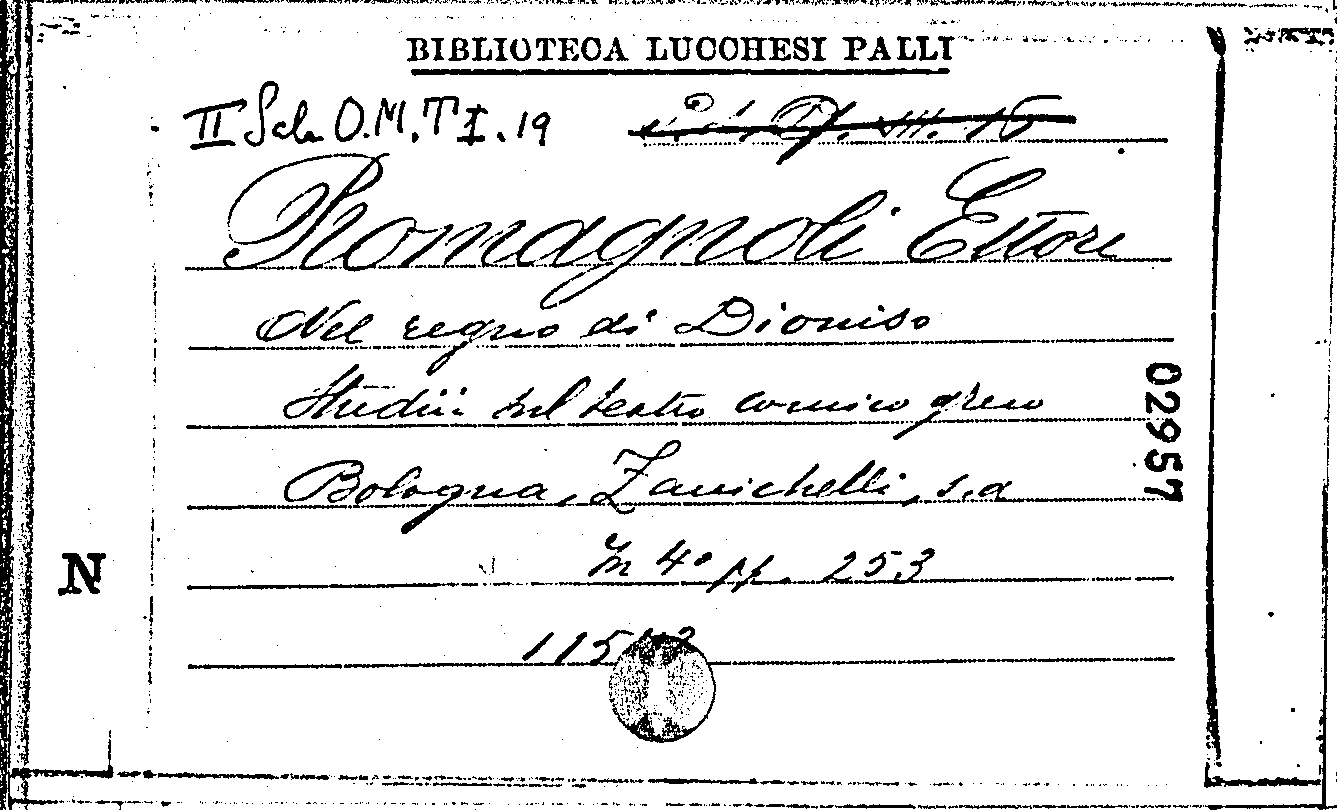 BIBLIOTECA LUCCHESI PALLI
II Sala O.M.T I. 19
Romagnoli Ettore
Nel regno di Dioniso
Studii sul teatro comico greco
Bologna, Zanichelli, s.a
In 4° pp. 253
02957
N